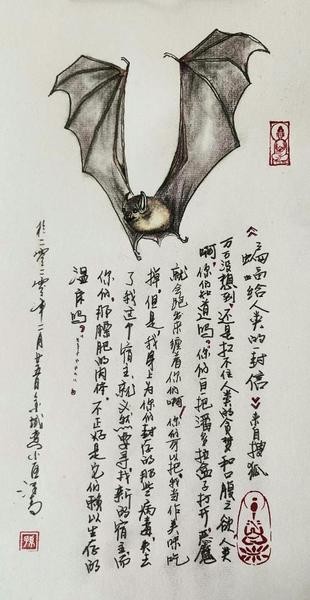 《蝙蝠给人类的一封信》来自搜狐
万万没想到,还是不住人类的贪婪和口腹之欲,人类
啊,你们知道吗?你们一旦把潘多拉盒子打开,恶魔
就会跑出来缠着你们啊!你们可以把我当作美味吃
掉,但是,我身上为你们封存的那些病毒,失去
了我这个宿主,就必然要寻找新的宿主,而
你们,那膘肥的肉体,不正好是它们赖以生存的
温床吗?
于二零二零年二月廿五日京城